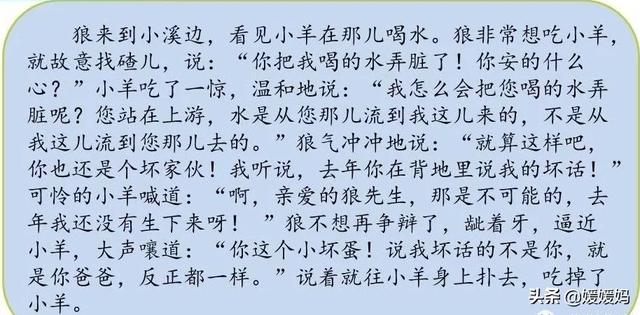 狼来到小溪边，看见小羊在那儿喝水。狼非常想吃小羊，
就故意找碴儿，说：“你把我喝的水弄脏了！你安的什么
心？”小羊吃了一惊，温和地说：“我怎么会把您喝的水弄
脏呢？您站在上游，水是从您那儿流到我这儿来的，不是从
我这儿流到您那儿去的。”狼气冲冲地说：“就算这样吧，
你也还是个坏家伙！我听说，去年你在背地里说我的坏话！”
可怜的小羊喊道：“啊，亲爱的狼先生，那是不可能的，去
年我还没有生下来呀！ ”狼不想再争辩了，龇着牙，逼近
小羊，大声嚷道：“你这个小坏蛋！说我坏话的不是你，就
是你爸爸，反正都一样。”说着就往小羊身上扑去，吃掉了
小羊。
头条 @媛媛妈